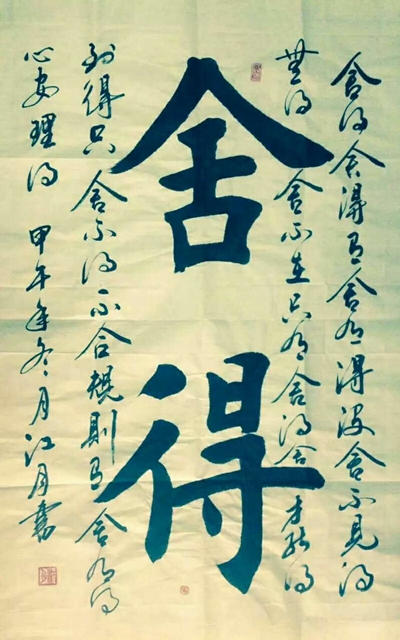 舍得
舍得舍得有舍有得没舍不见得
無得舍不在只有舍得舍才能得
到得只舍不得不合規則有舍有得
心安理得 甲午年冬月江月書